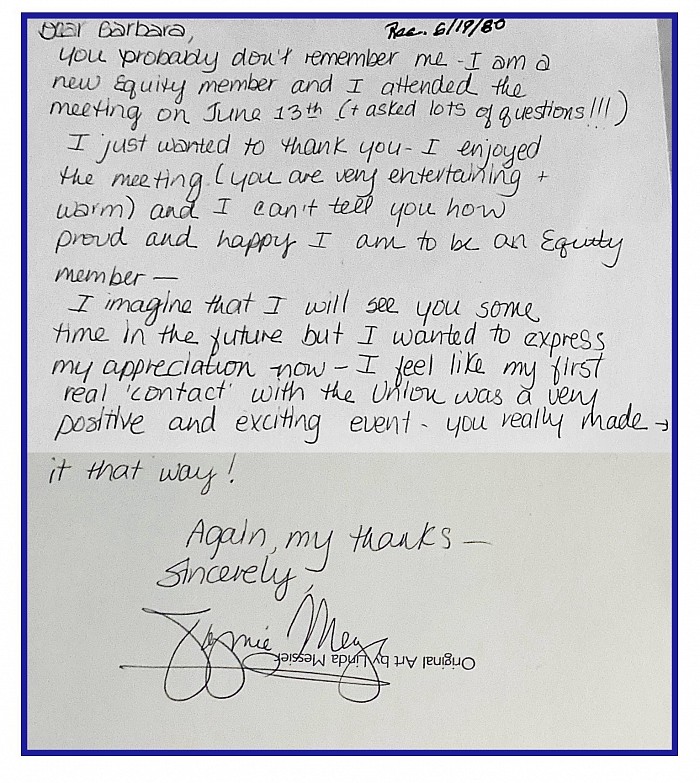 Dear Barbara,
Rec. 6/19/80
you probably don't remember me - I am a
new Equity member and I attended the
meeting on June 13th (+ asked lots of questions!!!)
I just wanted to thank you - I enjoyed
the meeting (you are very entertaining +
warm) and I can't tell you how
proud and happy I am to be an Equity
member —
I imagine that I will see you some
time in the future but I wanted to express
my appreciation now - I feel like my first
real 'contact' with the Union was a very
positive and exciting event - you really made →
it that way!
Again, my thanks —
Sincerely,
Original Art by Linda Messier